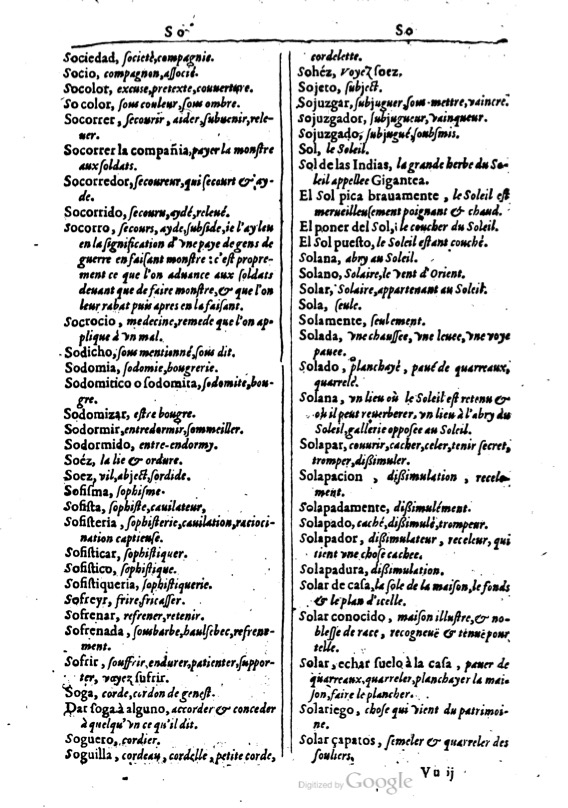 So
So
Sociedad, ſocieté,compagnie.
Socio, compagnon,aſſocié.
Socolor, excuse,pretexte,couuerture.
So color, ſous couleur,ſous ombre.
Socorrer, ſecourir, aider,ſubuenir,rele-
uer.
Socorrer la compañia,payer la monſtre
aux ſoldats.
Socorredor,ſecoureur,qui ſecourt & ay-
de.
Socorrido, ſecouru,aydé,releué.
Socorro, ſecours, ayde,ſubſide,ie l'ay leu
en la ſignification d'vne paye de gens de
guerre en faiſant monſtre : c'eſt propre-
ment ce que l'on aduance aux ſoldats
deuant que de faire monſtre,& que l'on
leur rabat puis apres en la faiſant.
Socrocio, medecine,remede que l'on ap-
plique à vn mal.
Sodicho,ſous mentionné,ſous dit.
Sodomia, ſodomie,bougrerie.
Sodomitico o ſodomita,ſodomite,bou-
gre.
Sodomizar, eſtre bougre.
Sodormir,entredormir,ſommeiller.
Sodormido, entre-endormy.
Soéz, la lie & ordure.
Soez, vil,abject,ſordide.
Sofiſma, ſophiſme.
Sofiſta, ſophiſte,cauilateur,
Sofiſteria, ſophiſterie,cauilation,racioci-
nation captieuſe.
Sofiſticar, ſophiſtiquer.
Sofiſtico, ſophiſtique.
Sofiſtiqueria, ſophiſtiquerie.
Sofreyr, frire,fricaſſer.
Sofrenar, refrener,retenir.
Sofrenada, ſoubarbe,hauſſebec,refrene-
ment.
Sofrir, ſouffrir,endurer,patienter,suppor-
ter, voyez ſufrir.
Soga, corde,cordon de geneſt.
Dar ſoga à alguno, accorder & conceder
à quelqu'vn ce qu'il dit.
Soguero, cordier.
Soguilla, cordeau, cordelle, petite corde,
cordelette.
Sohéz, voyez ſoez.
Sojeto, ſubject.
Sojuzgar, ſubjuguer,ſous-mettre,vaincre.
Sojuzgador, ſubjugueur, vainqueur.
Sojuzgado, ſubjugué,ſoubſmis.
Sol, le Soleil.
Sol de las Indias, la grande herbe du So-
leil appellee Gigantea.
El Sol pica brauamente, le Soleil eſt
merueilleuſement poignant & chaud.
El poner del Sol, le coucher du Soleil.
El Sol pueſto, le Soleil eſtant couché.
Solana, abry au Soleil.
Solano, Solaire,le vent d'Orient.
Solar, Solaire,appartenant au Soleil.
Sola, ſeule.
Solamente, ſeulement.
Solada, vne chauſſee, vne leuee, vne voye
pauee.
Solado, planchayé, paué de quarreaux,
quarrelé.
Solana, vn lieu où le Soleil eſt retenu &
où il peut reuerberer, vn lieu à l'abry du
Soleil,gallerie oppoſee au Soleil.
Solapar, couurir,cacher,celer,tenir ſecret,
tromper,dißimuler.
Solapacion, dißimulation, recele-
ment.
Solapadamente, dißimulément.
Solapado, caché,dißimulé,trompeur.
Solapador, dißimulateur, receleur, qui
tient vne choſe cachee.
Solapadura, dißimulation.
Solar de caſa, la ſole de la maiſon,le fonds
& le plan d'icelle.
Solar conocido, maiſon illuſtre,& no-
bleſſe de race, recogneuë & tenuë pour
telle.
Solar, echar ſuelo à la caſa, pauer de
quarreaux,quarreler,planchayer la mai-
ſon,faire le plancher.
Solariego, choſe qui vient du patrimoi-
ne.
Solar çapatos, ſemeler & quarreler des
ſouliers,
Vu ij
Digitized by Google